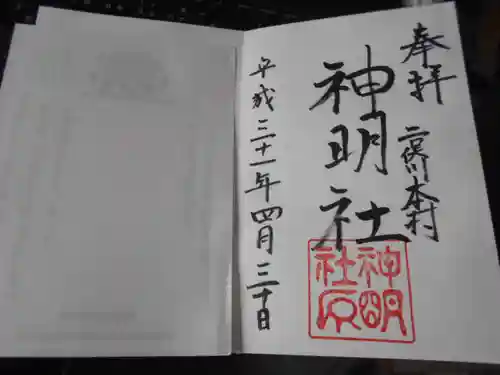 奉拝
二俣川本村
神明社
平成三十一年四月三十日
神明
社印